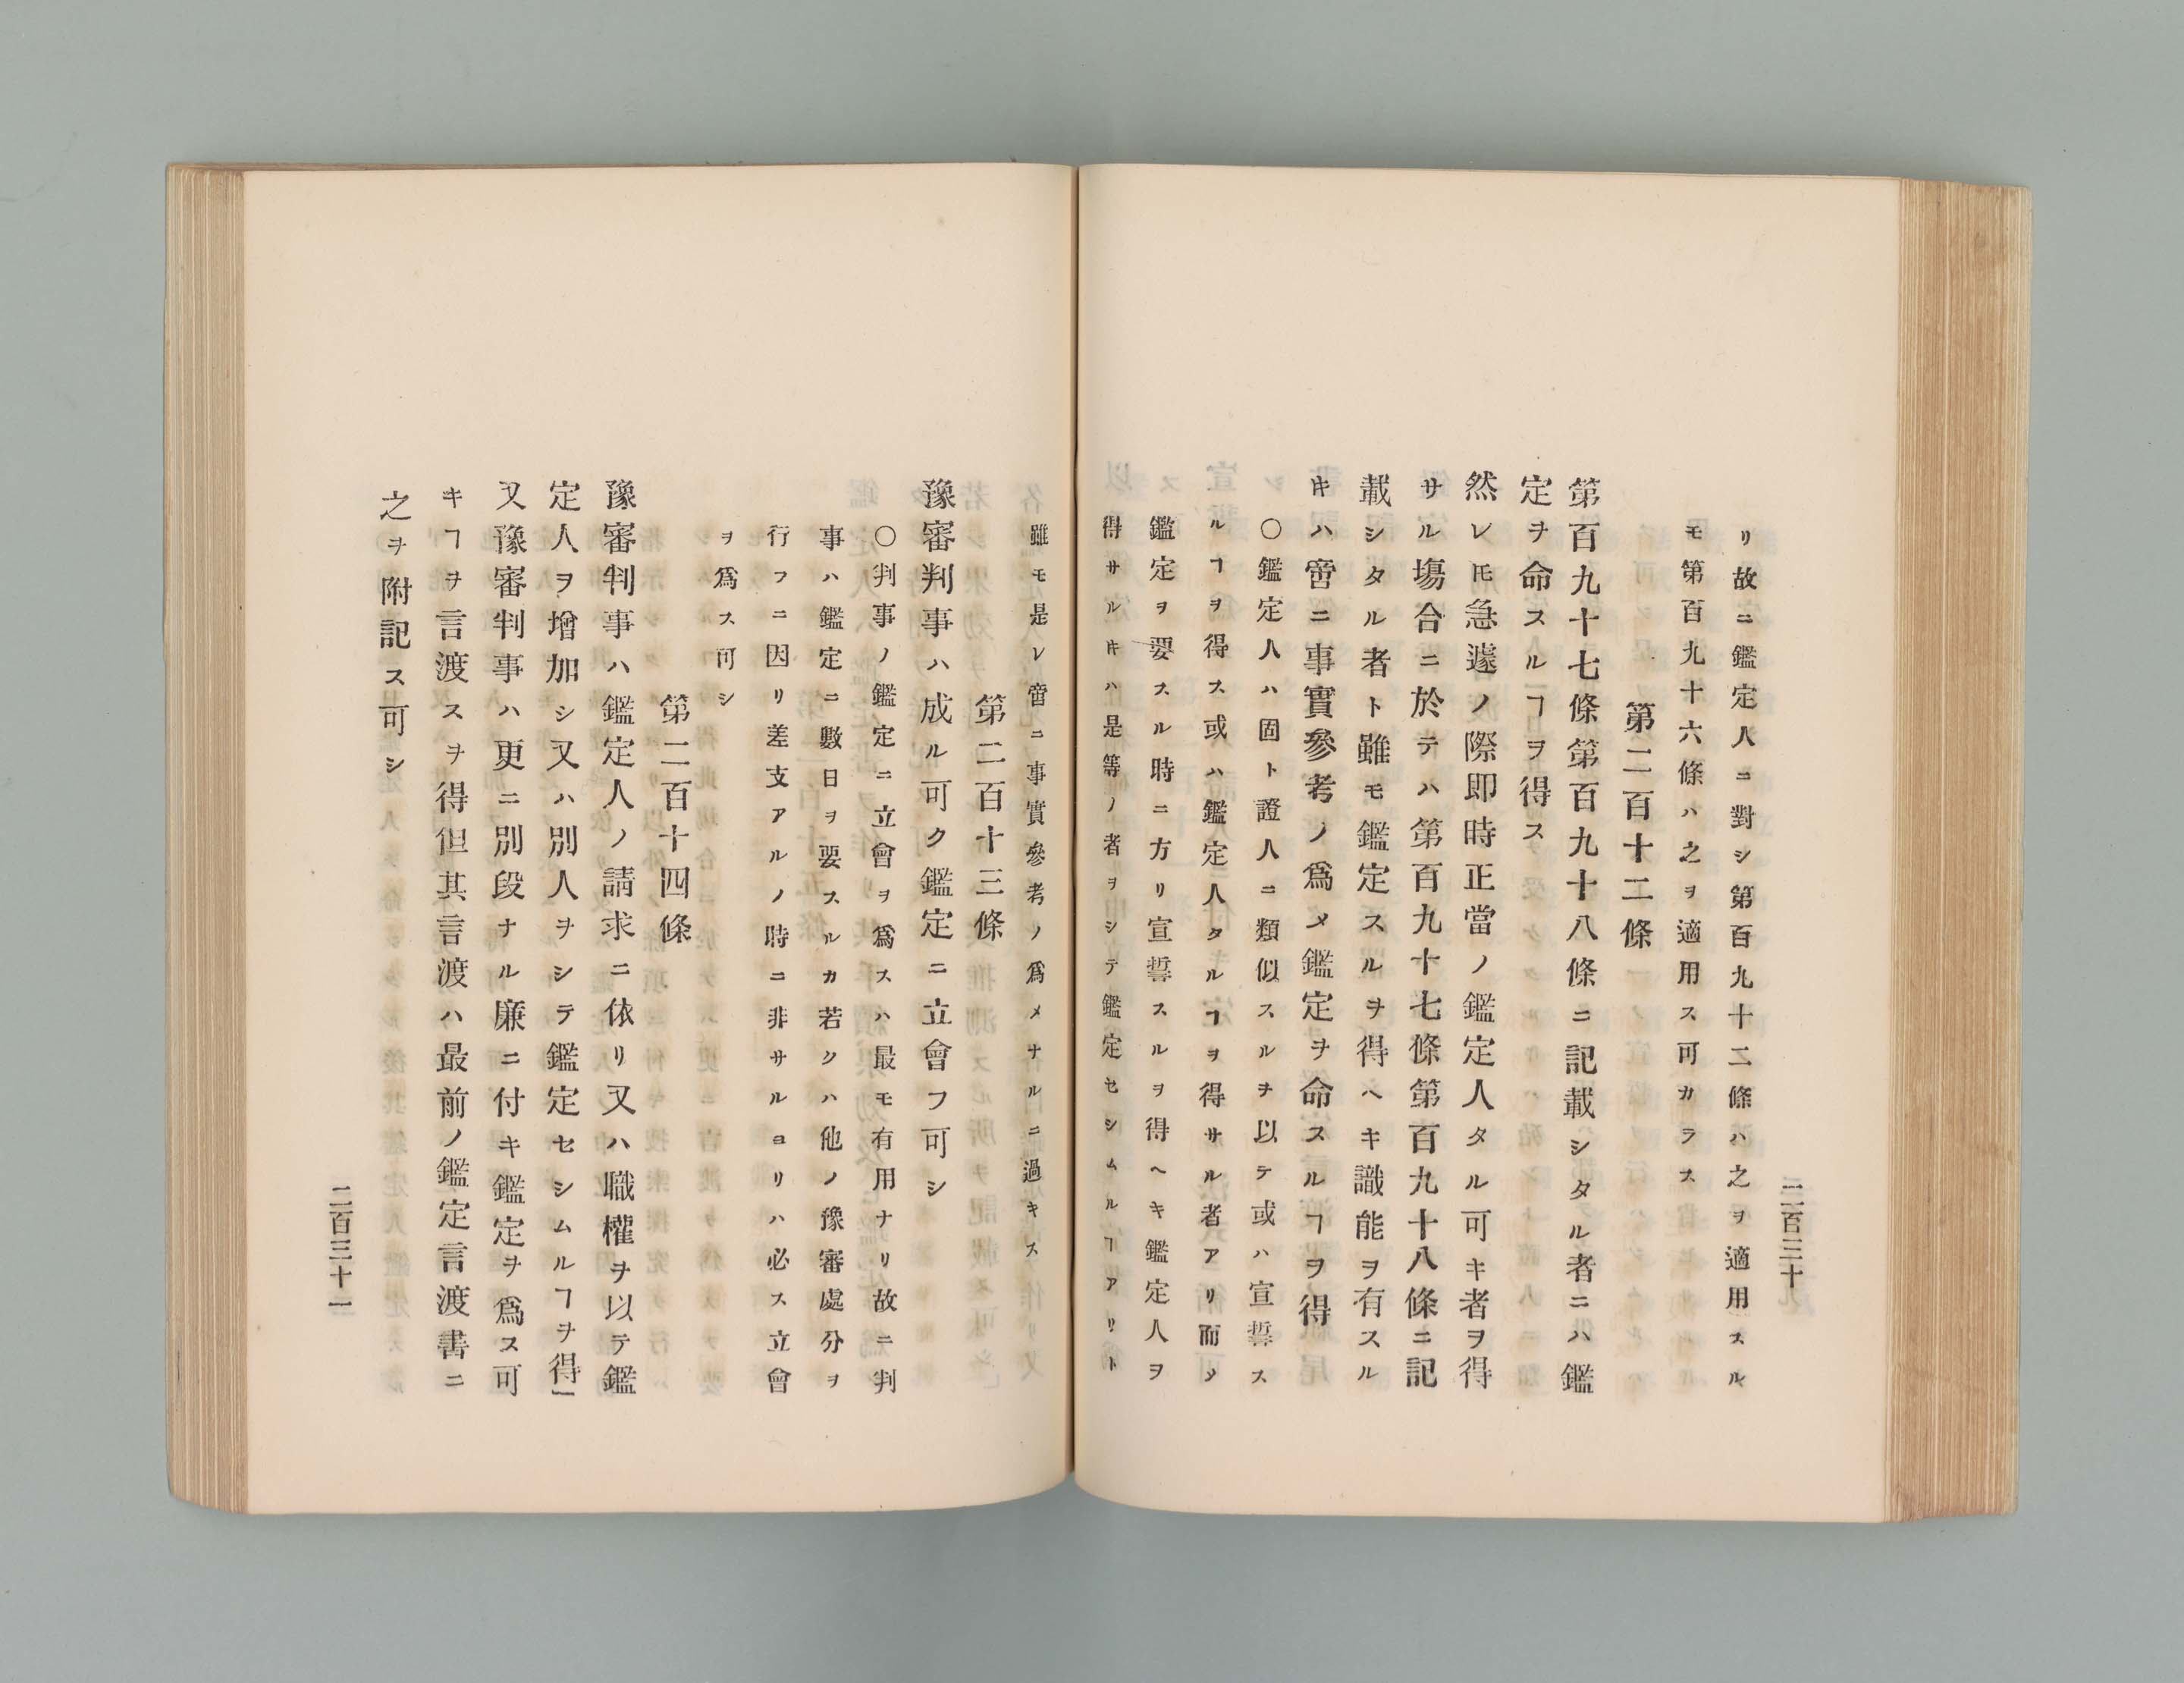 二百三十
リ故ニ鑑定人ニ對シ第百九十二條ハ之ヲ適用スル
モ第百九十六條ハ之ヲ適用ス可カラス
第二百十二條
第百九十七條第百九十八條ニ記載シタル者ニハ鑑
定ヲ命スルヿヲ得ス
然レ𪜈急遽ノ際即時正當ノ鑑定人タル可キ者ヲ得
サル塲合ニ於テハ第百九十七條第百九十八條ニ記
載シタル者ト雖モ鑑定スルヲ得ヘキ識能ヲ有スル
キハ啻ニ事實參考ノ爲メ鑑定ヲ命スルヿヲ得
〇鑑定人ハ固ト證人ニ類似スルヲ以テ或ハ宣誓ス
ルヿヲ得ス或ハ鑑定人タルヿヲ得サル者アリ而タ
鑑定ヲ要スル時ニ方リ宣誓スルヲ得ヘキ鑑定人ヲ
得サルキハ是等ノ者ヲシテ鑑定セシムルヿアリト
雖モ是レ啻ニ事實參考ノ爲メナルニ過キス
第二百十三條
豫審判事ハ成ル可ク鑑定ニ立會フ可シ
〇判事ノ鑑定ニ立會ヲ爲スハ最モ有用ナリ故ニ判
事ハ鑑定ニ數日ヲ要スルカ若クハ他ノ豫審處分ヲ
行フニ因リ差支アルノ時ニ非サルヨリハ必ス立會
ヲ爲ス可シ
第二百十四條
豫審判事ハ鑑定人ノ請求ニ依リ又ハ職權ヲ以テ鑑
定人ヲ增加シ又ハ別人ヲシテ鑑定セシムルヿヲ得」
又豫審判事ハ更ニ別段ナル廉ニ付キ鑑定ヲ爲ス可
キヿヲ言渡スヲ得但其言渡ハ最前ノ鑑定言渡書ニ
之ヲ附記ス可シ
二百三十一